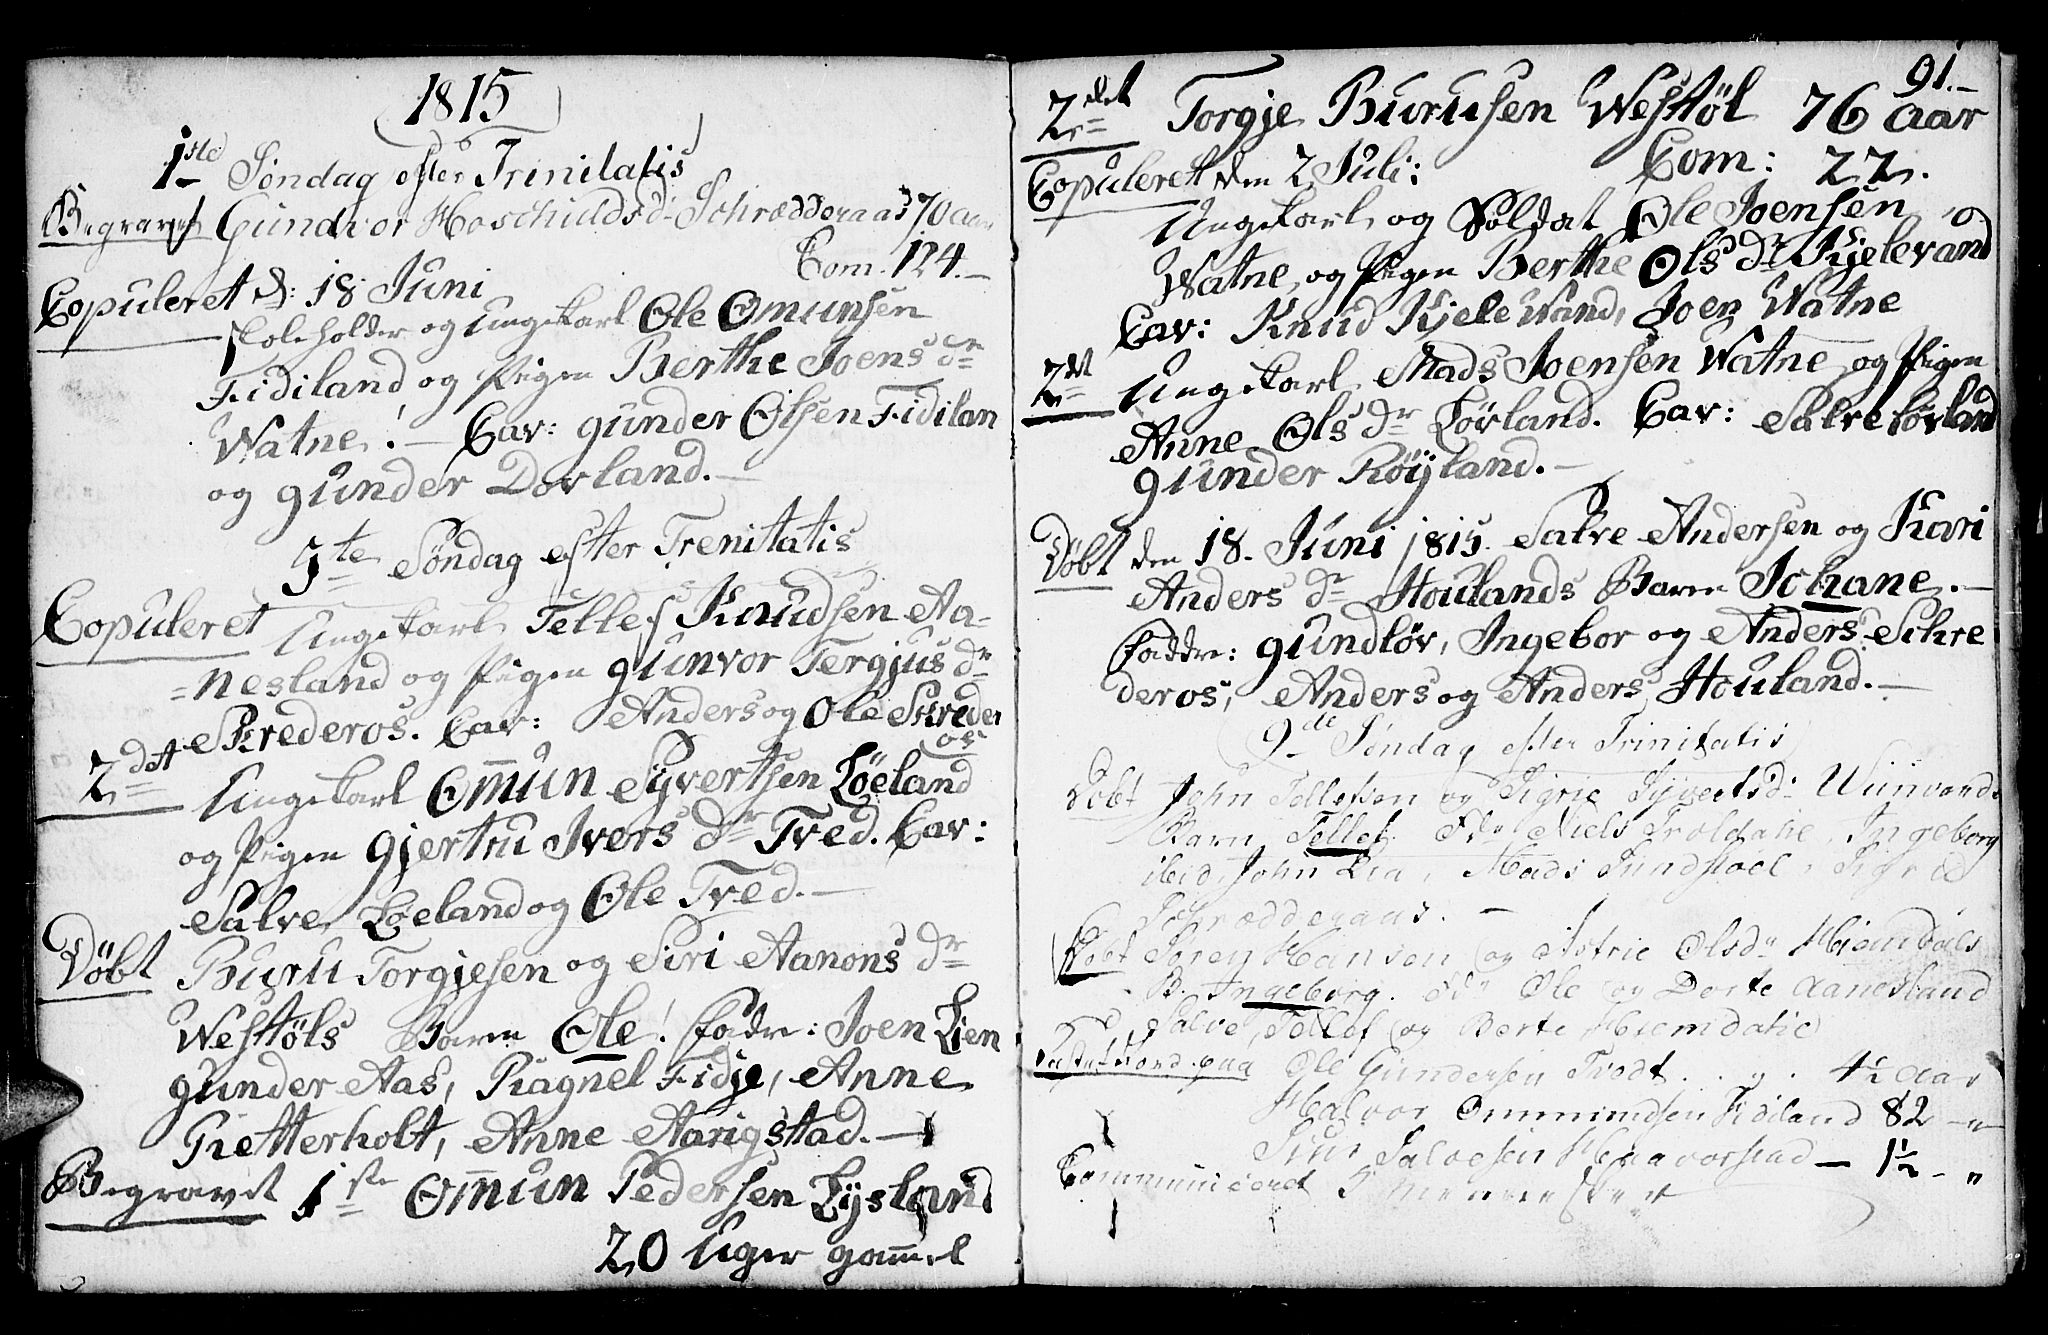 1815
1ste Søndag efter Trinitatis
Begravet Gundvor Hoschuldsd: Schrædderaas 70 aar
Com. 124.—
Copuleret d: 18 Juni
Skoleholder og Ungekarl Ole Omunsen
Fidiland og Pigen Berthe Joens dr
Watne! — Cav: gunder Olsen Fidilan
og gunder Dovland.—
3te Søndag efter Trenitatis
Copuleret Ungekarl Tellef Knudsen Aa-
=nesland og Pigen gunvor Tergjus dr
Skrederos. Cav: Anders og Ole Skreder
os
2det Ungekarl Omun Syvertsen Löeland
og Pigen gjertru Ivers dr Tved. Cav:
Salve Löeland og Ole Tved.—
Döbt Buru Torgjesen og Siri Aanons dr
Westøls Barn Ole! Fadr: Joen Lien
gunder Aas, Ragnel Fidje, Anne
Retterholt, Anne Aarigstad.—
Begravet 1ste Omun Pedersen Lysland
20 Uger gamel
91.—
2det Torgje Burusen Westøl 76 aar
Com: 22.
Copuleret den 2 Juli:
Ungekarl og Soldat Ole Joensen
Watne, og Pigen Berthe Ols dr Kjelevand
Cav: Knud Kjele Wand, Joen Watne
2det Ungekarl Mads Joensen Watne og Pigen
Anne Ols dr Lövland. Cav: Salve Lövland
gunder Röyland.—
Döbt den 18. Juni 1815. Salve Andersen og Kari
Anders dr Houlands Barn Johane.—
Faddr: gundlöv, Ingebor og Anders Schre
deros, Anders og Anders Houland.—
9de Søndag efter Trinitatis
Döbt John Tellefsen og Sigrie Syvertsd:
Barn Tellef. Niels Troldalie, Ingeborg
ibid, John Lia, Mads Sundstoel, Sigrid
Schrædderaas.—
Döbt Søren Hansen og Astrie Olsdr
B. Ingeborg. Ole og Dorte Aanesland
Salve, Tellef og Berte Hiemdalie
Ole Gundersen Tvedt 4½ aar
Halvor Ommundsen Fidiland 82 — "
Salvesen Haavorstad — 1½ — "